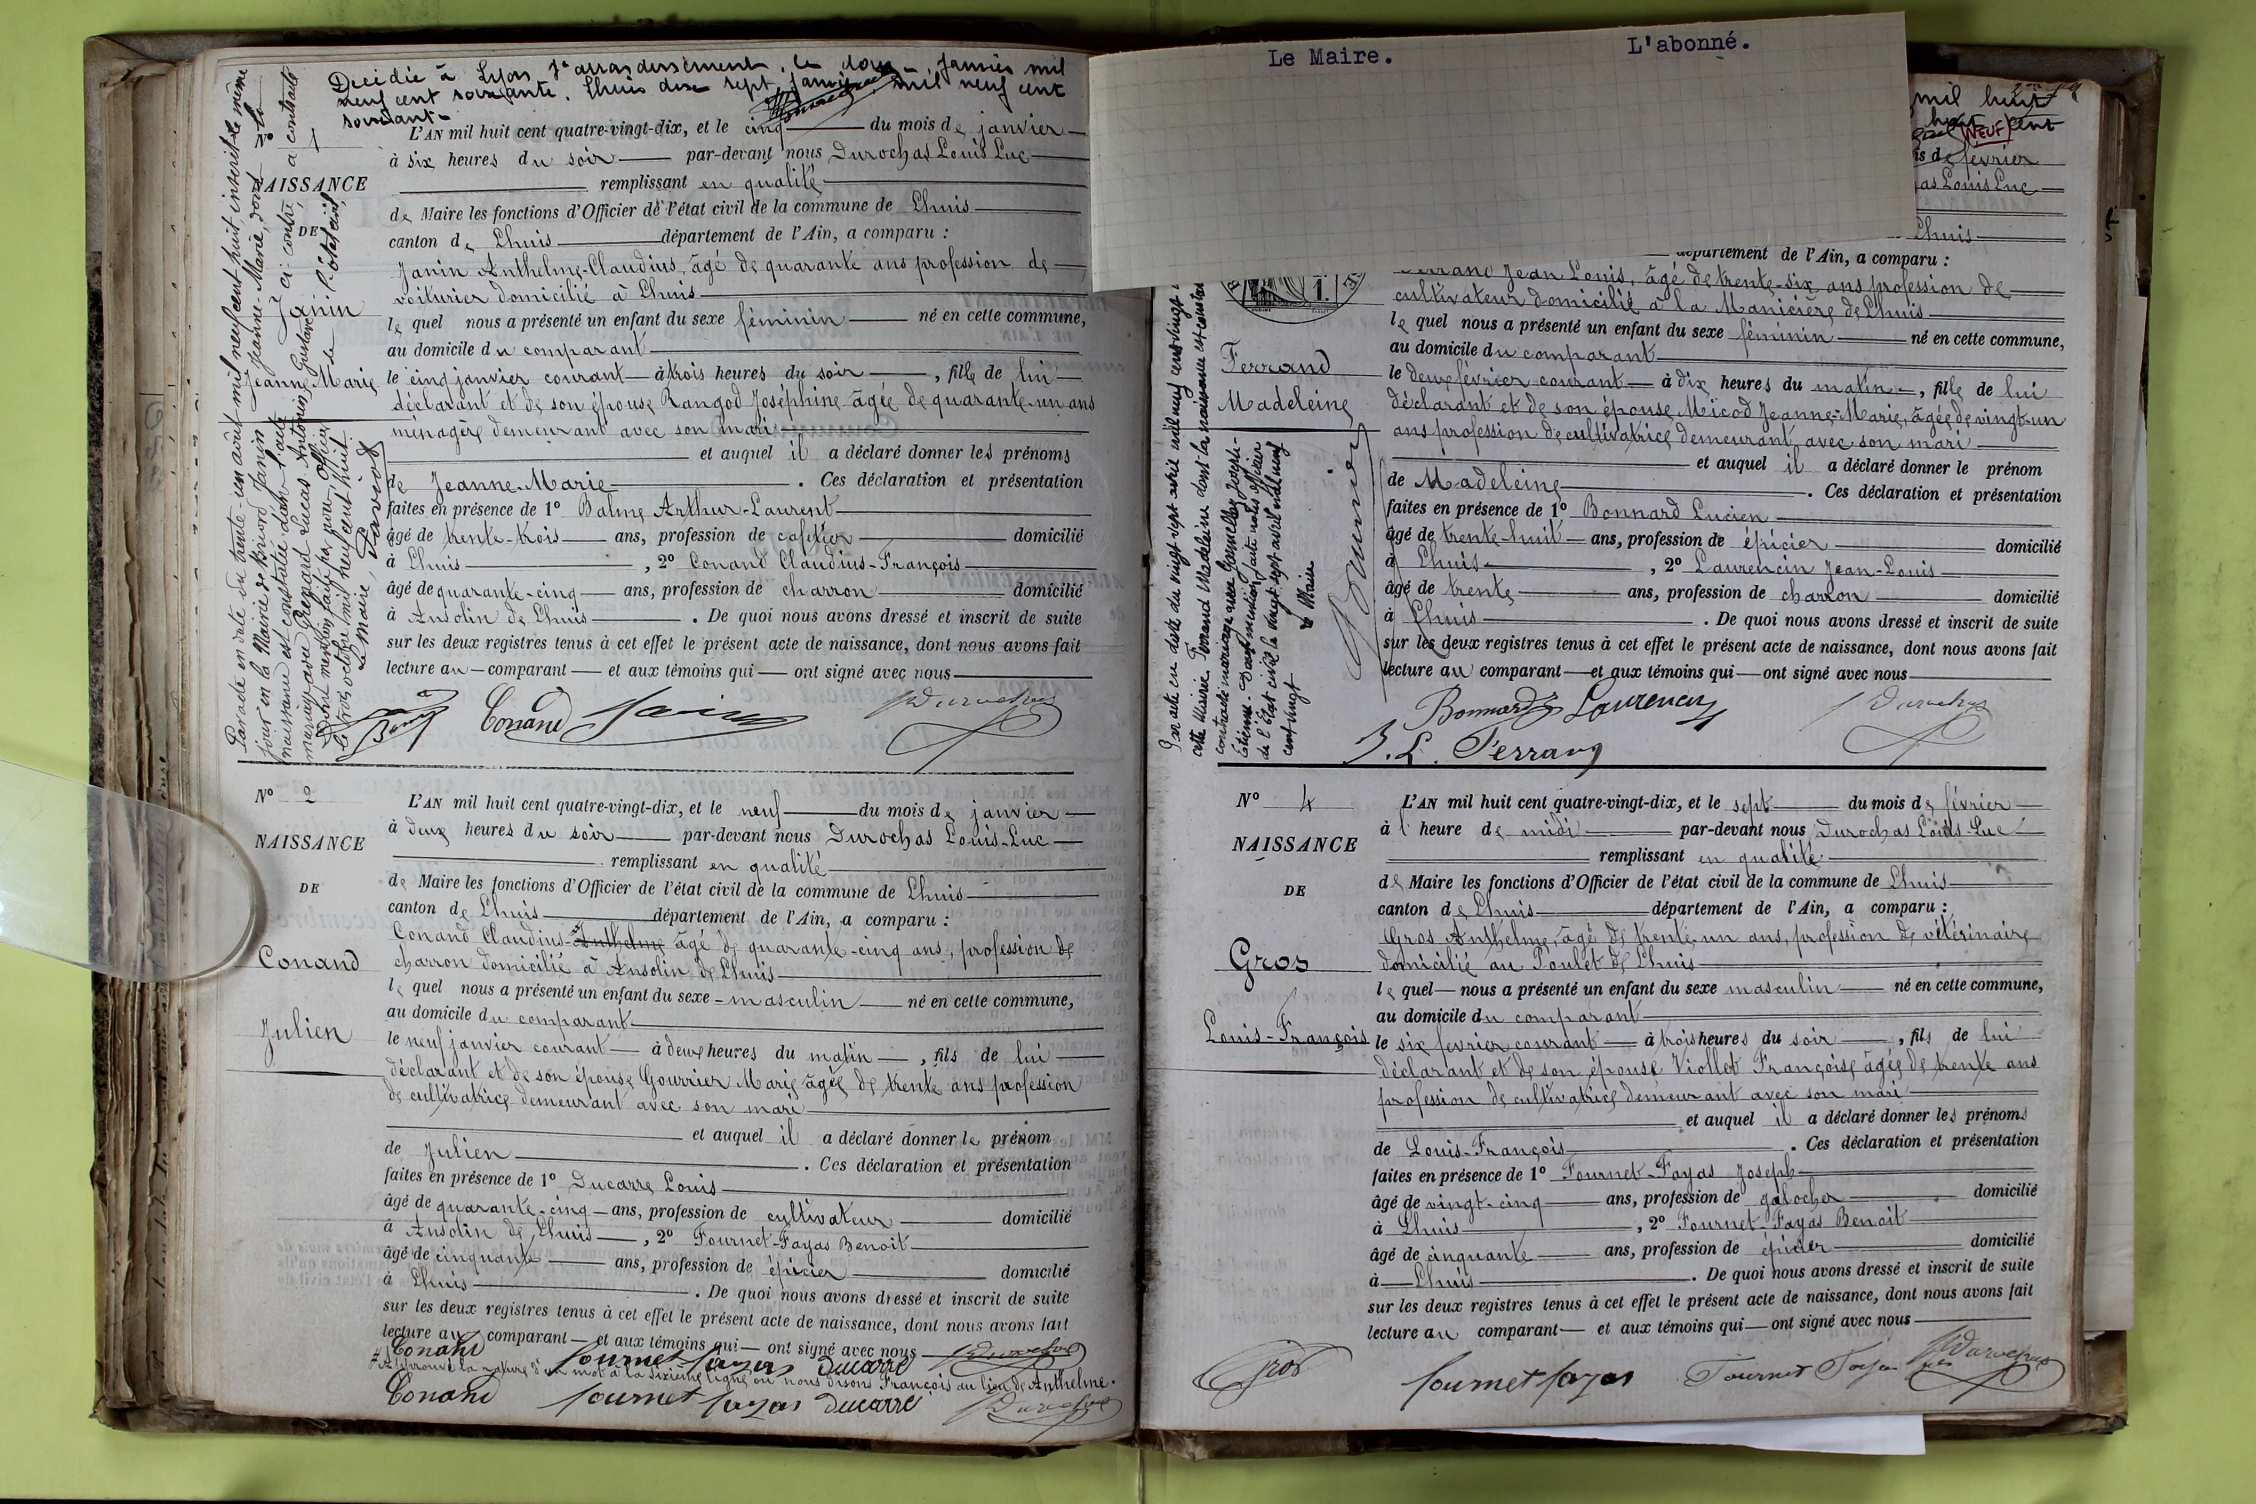 Décidée à Lyon 7e arrondissement, le douze janvier mil
neuf cent soixante. Lhuis dix sept janvier mil neuf cent
soixante
N° 1
NAISSANCE
DE
Janin
Jeanne-Marie
L'AN mil huit cent quatre-vingt-dix, et le cinq du mois de janvier
à six heures du soir par-devant nous Durochas Louis Luc
remplissant en qualité
de Maire les fonctions d'Officier de l'état civil de la commune de Lhuis
canton de Lhuis département de l'Ain, a comparu :
Janin Anthelme-Claudius, âgé de quarante ans profession de
voiturier domicilié à Lhuis
lequel nous a présenté un enfant du sexe féminin né en cette commune,
au domicile du comparant
le cinq janvier courant à trois heures du soir, fille de lui
déclarant et de son épouse Rangod Joséphine âgée de quarante-un ans
ménagère demeurant avec son mari
et auquel il a déclaré donner les prénoms
de Jeanne-Marie. Ces déclaration et présentation
faites en présence de 1° Balme Arthur-Laurent
âgé de trente-trois ans, profession de cafetier domicilié
à Lhuis, 2° Conand Claudius-François
âgé de quarante-cinq ans, profession de charron domicilié
à Ansolin de Lhuis. De quoi nous avons dressé et inscrit de suite
sur les deux registres tenus à cet effet le présent acte de naissance, dont nous avons fait
lecture au comparant et aux témoins qui ont signé avec nous
Conand Janin Durochas
Par acte en date du trente-un août mil neuf cent huit, inscrit le même
jour en la Mairie de Briord Janin Jeanne-Marie, dont la
naissance est constatée dans l'acte ci-contre, a contracté
mariage avec Grepard Lucas Antonin Gustave
Dont mention faite par nous Officier de l'état civil,
le trois octobre mil neuf cent huit
Le Maire,
N° 2
NAISSANCE
DE
Conand
Julien
L'AN mil huit cent quatre-vingt-dix, et le neuf du mois de janvier
à deux heures du soir par-devant nous Durochas Louis-Luc
remplissant en qualité
de Maire les fonctions d'Officier de l'état civil de la commune de Lhuis
canton de Lhuis département de l'Ain, a comparu :
Conand Claudius-Anthelme âgé de quarante-cinq ans, profession de
charron domicilié à Ansolin de Lhuis
lequel nous a présenté un enfant du sexe masculin né en cette commune,
au domicile du comparant
le neuf janvier courant à deux heures du matin, fils de lui
déclarant et de son épouse Gouvrier Marie âgée de trente ans profession
de cultivatrice demeurant avec son mari
et auquel il a déclaré donner le prénom
de Julien. Ces déclaration et présentation
faites en présence de 1° Ducarre Louis
âgé de quarante-cinq ans, profession de cultivateur domicilié
à Ansolin de Lhuis, 2° Fournet-Fayas Benoit
âgé de cinquante ans, profession de épicier domicilié
à Lhuis. De quoi nous avons dressé et inscrit de suite
sur les deux registres tenus à cet effet le présent acte de naissance, dont nous avons fait
lecture au comparant et aux témoins qui ont signé avec nous
Conand Fournet-Fayas Ducarre Durochas
Approuvé la rature d'un mot à la sixième ligne où nous disons François au lieu de Anthelme.
Conand Fournet Fayas Ducarre Durochas
Le Maire. L'abonné.
mil huit
cent
NEUF
is de février
as Louis Luc
Lhuis
département de l'Ain, a comparu :
Ferrand
Madeleine
Ferrand Jean Louis, âgé de trente-six ans profession de
cultivateur domicilié à la Manicière de Lhuis
lequel nous a présenté un enfant du sexe féminin né en cette commune,
au domicile du comparant
le deux février courant à dix heures du matin, fille de lui
déclarant et de son épouse Micod Jeanne-Marie, âgée de vingt-un
ans profession de cultivatrice demeurant avec son mari
et auquel il a déclaré donner le prénom
de Madeleine. Ces déclaration et présentation
faites en présence de 1° Bonnard Lucien
âgé de trente-huit ans, profession de épicier domicilié
à Lhuis, 2° Laurencin Jean-Louis
âgé de trente ans, profession de charron domicilié
à Lhuis. De quoi nous avons dressé et inscrit de suite
sur les deux registres tenus à cet effet le présent acte de naissance, dont nous avons fait
lecture au comparant et aux témoins qui ont signé avec nous
Bonnard Laurencin Durochas
J. L. Ferrand
Par acte en date du vingt sept avril mil neuf cent vingt
cette Mairie Ferrand Madeleine dont la naissance est constatée
contracté mariage avec Joseph-
Etienne. Dont mention faite nous officier
de l'Etat civil le vingt sept avril mil neuf
cent vingt
le Maire
N° 4
NAISSANCE
DE
Gros
Louis-François
L'AN mil huit cent quatre-vingt-dix, et le sept du mois de février
à l'heure de midi par-devant nous Durochas Louis-Luc
remplissant en qualité
de Maire les fonctions d'Officier de l'état civil de la commune de Lhuis
canton de Lhuis département de l'Ain, a comparu :
Gros Anthelme, âgé de trente-un ans, profession de vétérinaire
domicilié au Poulet de Lhuis
lequel nous a présenté un enfant du sexe masculin né en cette commune,
au domicile du comparant
le six février courant à trois heures du soir, fils de lui
déclarant et de son épouse Viollet Françoise âgée de trente ans
profession de cultivatrice demeurant avec son mari
et auquel il a déclaré donner les prénoms
de Louis-François. Ces déclaration et présentation
faites en présence de 1° Fournet-Fayas Joseph
âgé de vingt-cinq ans, profession de galocher domicilié
à Lhuis, 2° Fournet-Fayas Benoit
âgé de cinquante ans, profession de épicier domicilié
à Lhuis. De quoi nous avons dressé et inscrit de suite
sur les deux registres tenus à cet effet le présent acte de naissance, dont nous avons fait
lecture au comparant et aux témoins qui ont signé avec nous
Gros Fournet Fayas Fournet Fayas Durochas